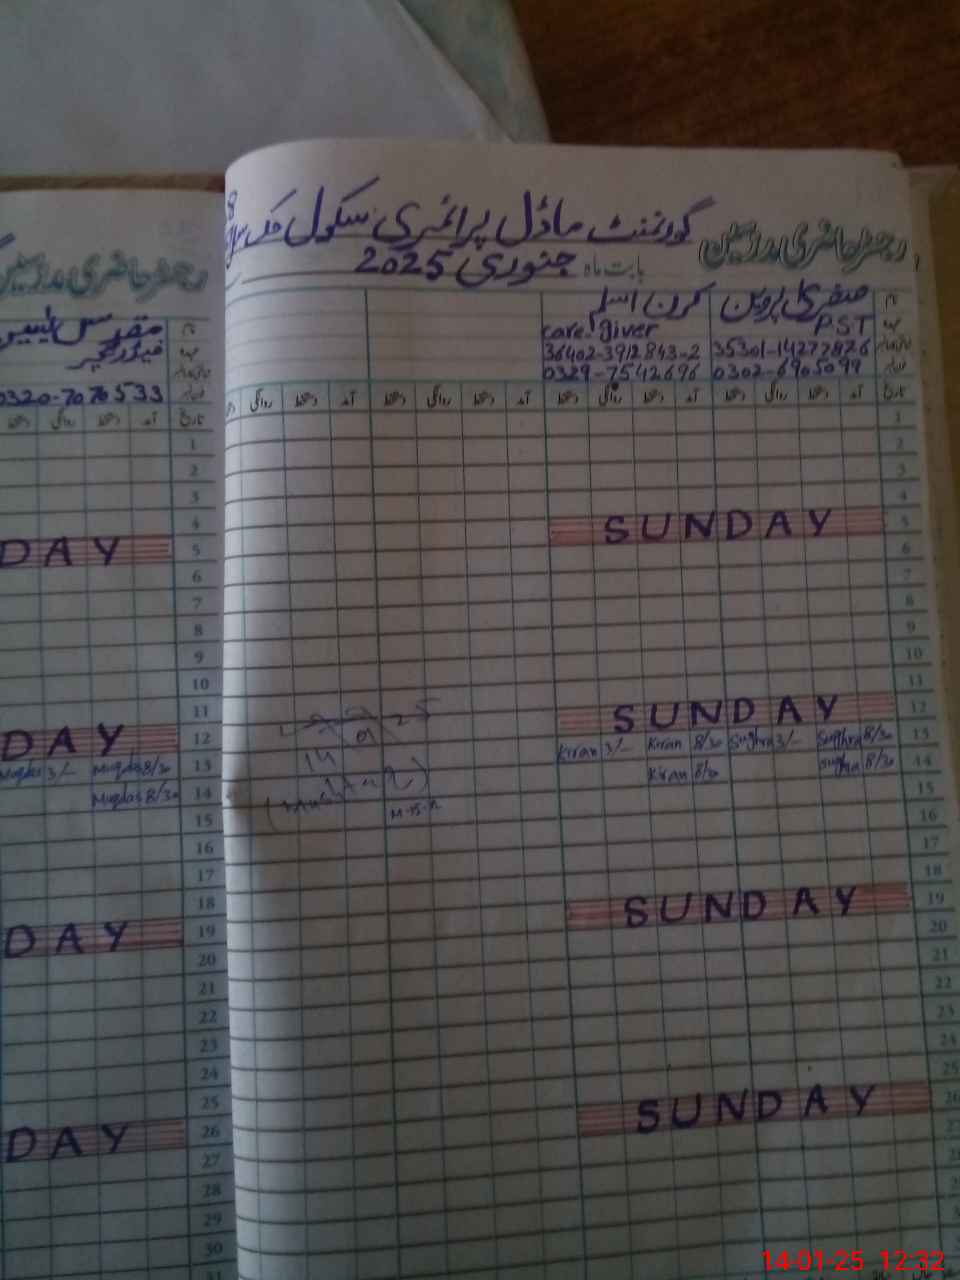 رجسٹر حاضری مدرسین گورنمنٹ ماڈل پرائمری سکول
بابت ماہ جنوری 2025
نام صغریٰ پروین کرن اسلم
عہدہ PST care giver
35301-14277826 36402-3912843-2
0302-6905099 0329-7542696
تاریخ آمد دستخط روانگی دستخط آمد دستخط روانگی دستخط آمد دستخط روانگی دستخط آمد دستخط روانگی
1
2
3
4
5 SUNDAY
6
7
8
9
10
11
12 SUNDAY
13 8/30 Sughra 3/- Sughra 8/30 Kiran 3/- Kiran
14 8/30 Sughra 8/30 Kiran
15
16
17
18
19 SUNDAY
20
21
22
23
24
25
26 SUNDAY
27
رجسٹر حاضری مدرسین
نام
عہدہ
0320-7076533
تاریخ آمد دستخط روانگی دستخط
1
2
3
4
5 DAY
6
7
8
9
10
11
12 DAY
13 8/30 Muqdas 3/- Muqdas
14 8/30 Muqdas
15
16
17
18
19 DAY
20
21
22
23
24
25
26 DAY
27
28
29
30
31
14-01-25 12:32